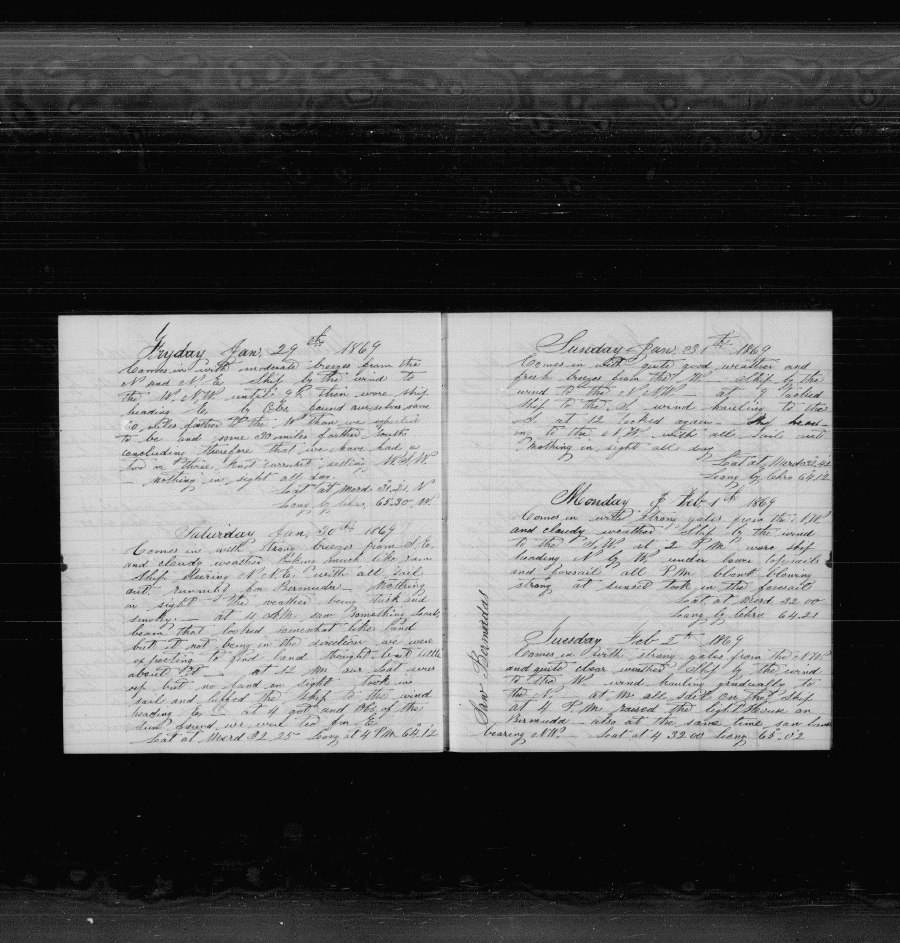 Fryday Jan. 29th 1869
Comes in with moderate breezes from the
N and N. E. Ship by the wind to
the W. N.W. untill 9 h then wore ship
heading E. by Chr. found ourselves some
30 miles farther to the W than we expected
to be and some 30 miles farther South
concluding therefore that we have had a
two or three knot current setting W.S.W.
— nothing in sight all day.
Lat at Merd 31.21 N
Long by Chr. 65.30 W
Saturday Jan. 30th 1869
Comes in with strong breezes from S.E.
and cloudy weather looking much like rain
Ship steering N.N.E. with all sail
out running for Bermuda — Nothing
in sight the weather being thick and
smoky. — at 4 P.M. saw something
beam that looked somewhat like land
but it not being in the direction we were
expecting to find land thought but little
about it — at 12 M our Lat was
up but no land in sight took in
sail and luffed the ship to the wind
heading E at 4 got and Obs of the
sun found we were too far E
Lat at Merd 32.25 Long at 4 P.M. 64.12
Sunday Jan. 31st 1869
Comes in with quite good weather and
fresh breezes from the W. Ship by the
wind to the N.N.W. — at 9 tacked
ship to the S. wind hauling to the
S. at 12 tacked again. Ship head-
ing to the N.W. with all sail out
nothing in sight all day
Lat at Merd
Long by Chro 64.12
Monday Feb 1th 1869
Comes in with strong gales from the N.W.
and cloudy weather Ship by the wind
to the S.W. at 2 P.M. wore ship
heading N by W. under lower topsails
and foresail all P.M. blowing
strong at sunset took in the foresail
Lat at Merd. 32.00
Long by Chro 64.21
Saw Bermudas
Tuesday Feb 2th 1869
Comes in with strong gales from the N.W.
and quite clear weather Ship by the wind
to the W. wind hauling gradually to
the N. at M all sail on the ship
at 4 P.M. raised the light House on
Bermuda — also at the same time saw land
bearing N.W. Lat at 4 32.00 Long 65.02